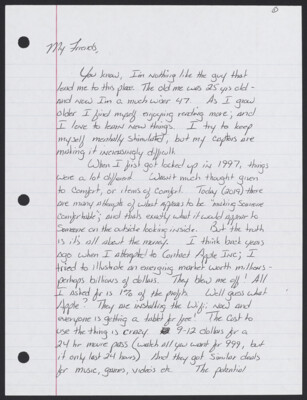 My Friends,
You know, I'm nothing like the guy that
lead me to this place. The old me was 25 yrs old -
and now I'm a much wiser 47. As I grow
older I find myself enjoying reading more; and
I love to learn new things. I try to keep
myself mentally stimulated, but my captors are
making it increasingly difficult.
When I first got locked up in 1997, things
were a lot different. Wasn't much thought given
to comfort, or items of comfort. Today (2019) there
are many attempts of what appears to be "making someone
comfortable"; and that's exactly what it would appear to
someone on the outside looking inside. But the truth
is it's all about the money. I think back years
ago when I attempted to contact Apple Inc; I
tried to illustrate an emerging market worth millions -
perhaps billions of dollars. They blew me off! All
I asked for is 1% of the profits. Well guess what
Apple? They are installing the wifi now and
everyone is getting a tablet for free! The cost to
use the thing is crazy 9-12 dollars for a
24 hr movie pass (watch all you want for 999, but
it only last 24 hours) And they got similar deals
for music, games, videos etc. The potential